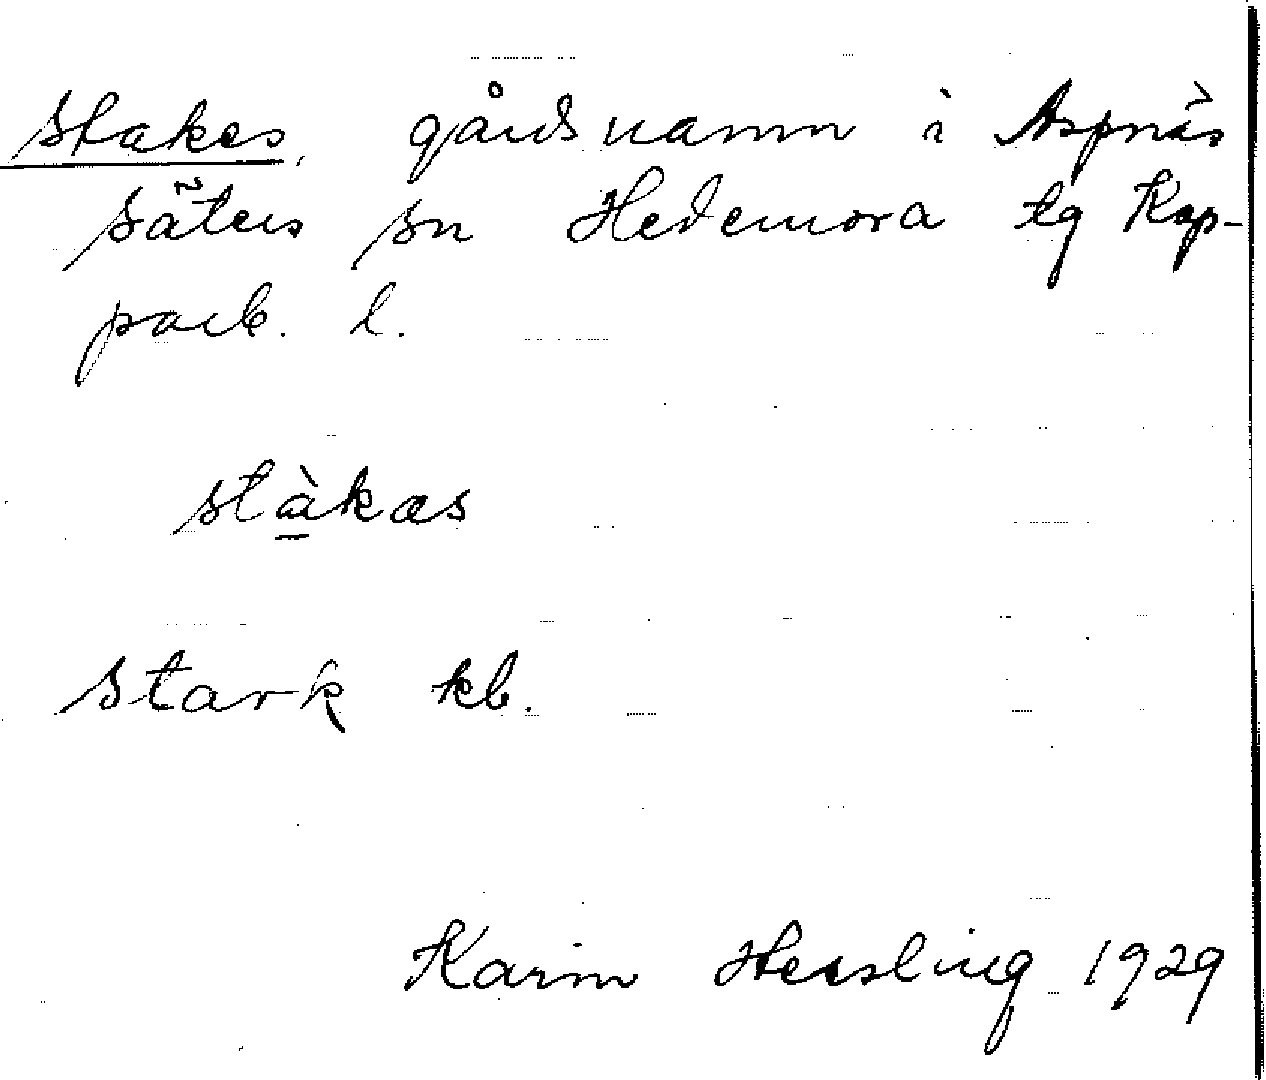 Stakes, gårdsnamn i Aspnäs
Säters sn Hedemora tg Kop-
parb. l.
stàkas
Stark kb.
Karin Hessling 1929